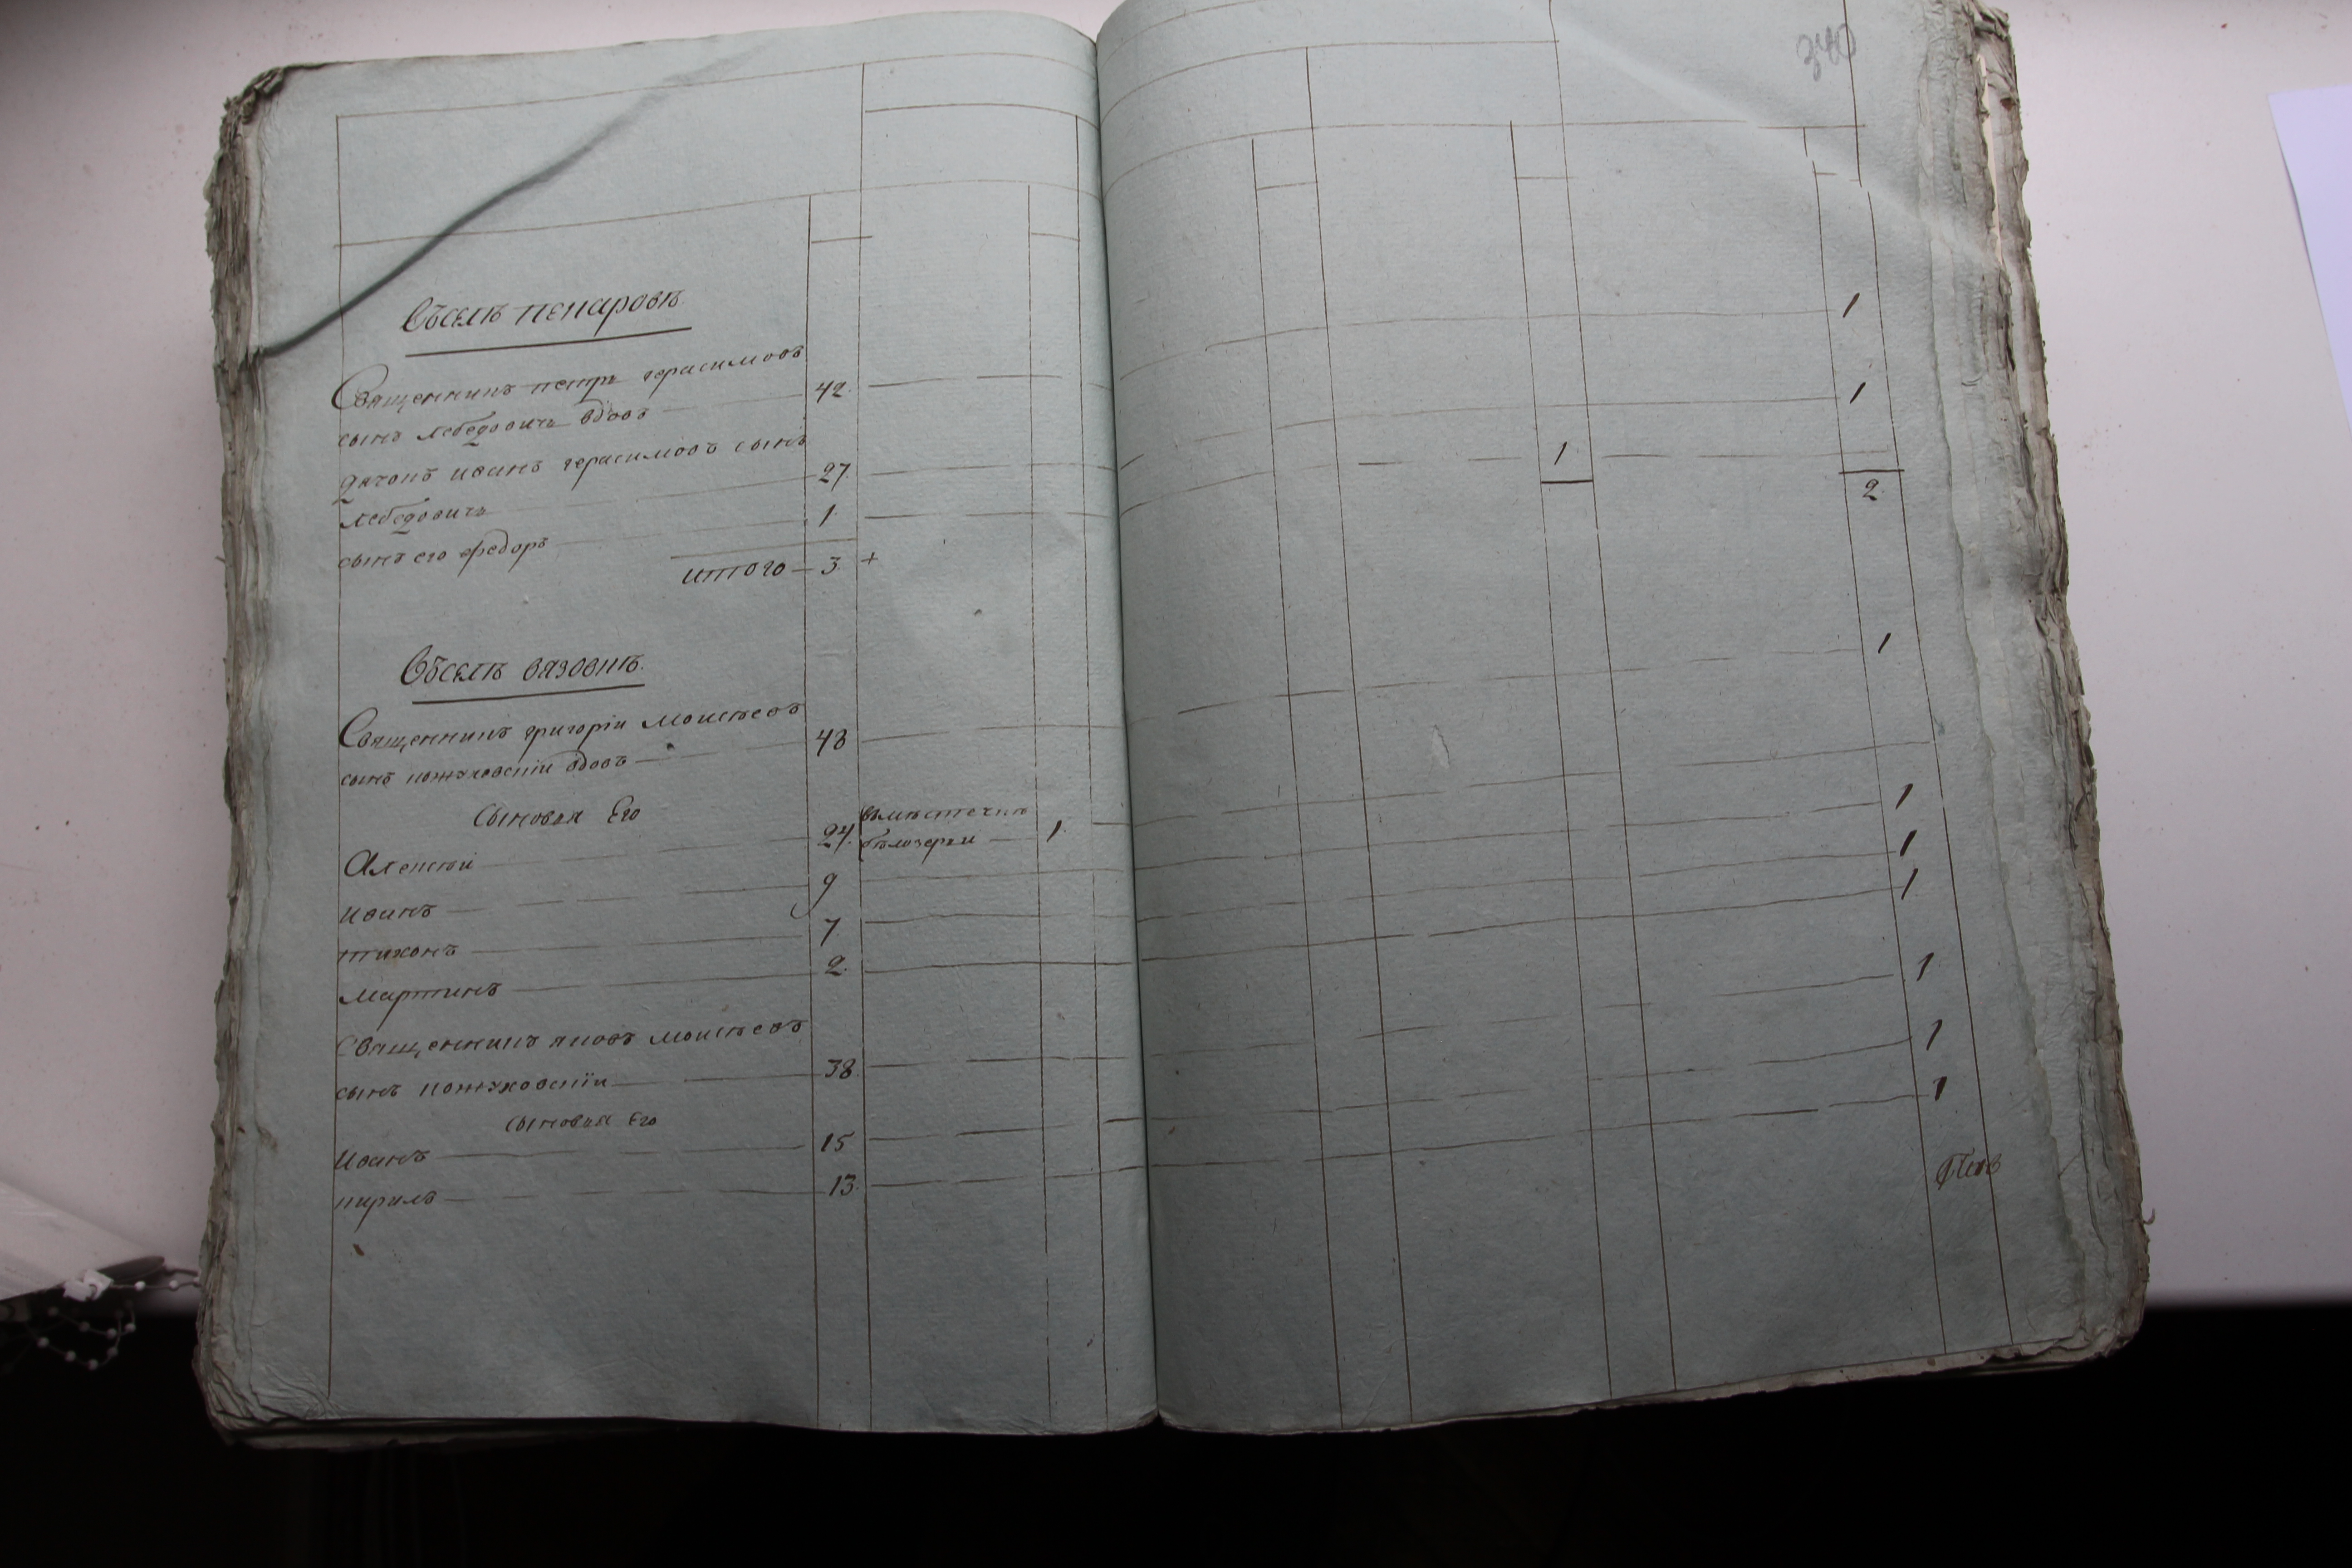 340
Въселѣ пекаровѣ.
Священникъ петръ герасимовъ
сынъ лебедовичь вдовъ 42. 1
дячокъ иванъ герасимовъ сынъ
лебедовичь 27. 1
сынъ его федоръ 1 1
итого 3. + 2
Въселѣ вязовкѣ.
Священникъ григорій моисѣевъ
сынъ кожуховскій вдовъ 43 1
Сыновья Его
Алексѣй 24. вмѣстечкѣ
бѣлозерки 1.
иванъ 9 1
тихонъ 7. 1
мартинъ 2. 1
Священникъ яковъ моисѣевъ
сынъ кожуховскій 38. 1
сыновья Его
Иванъ 15 1
кирилъ 13. 1